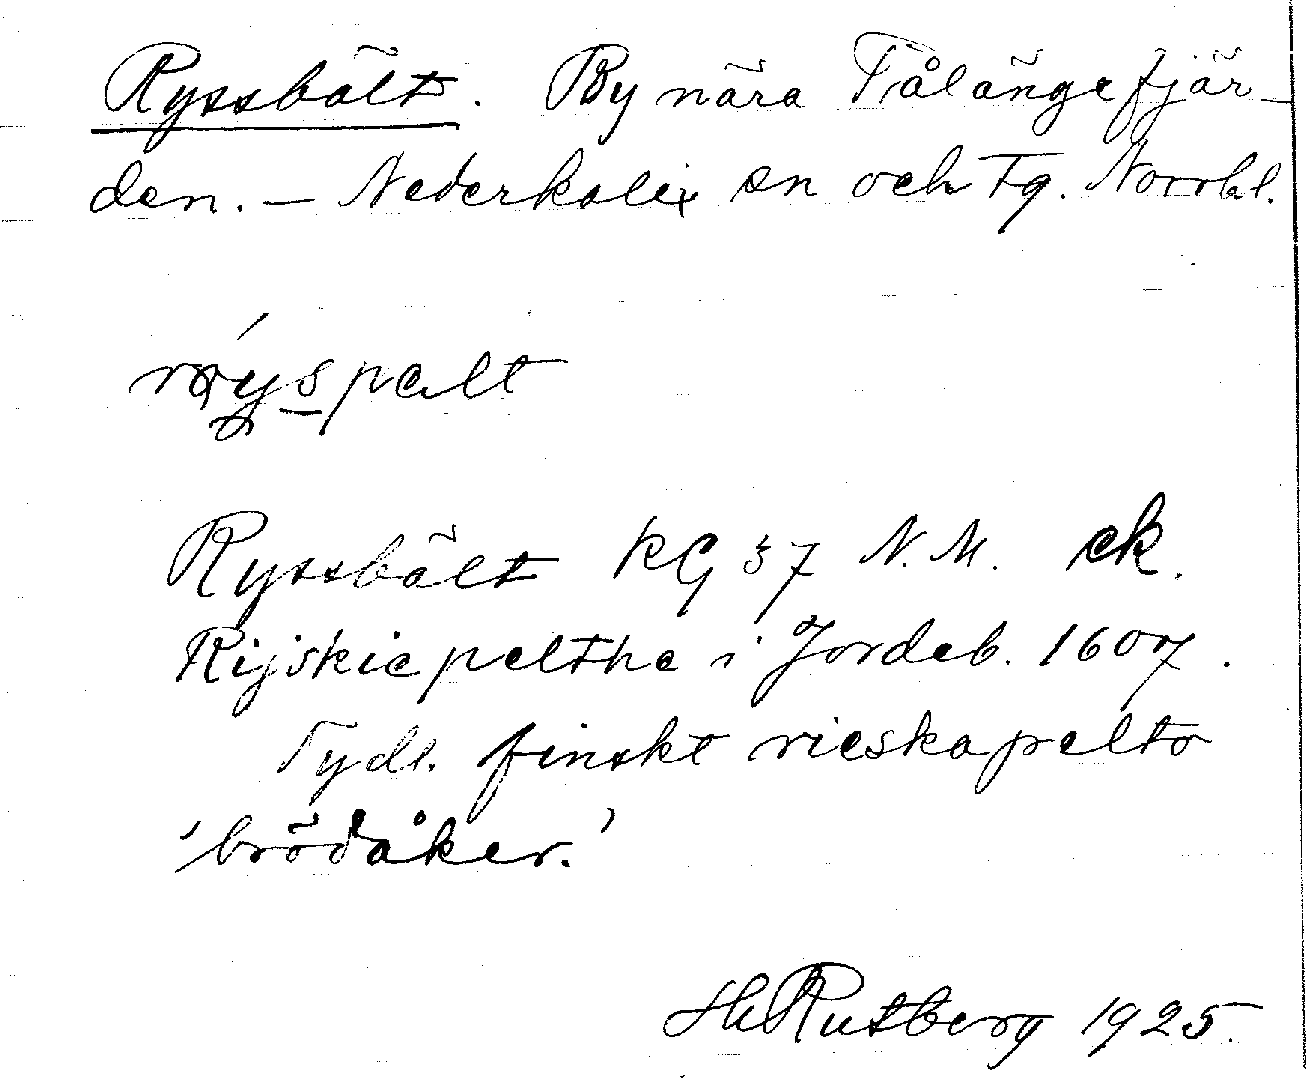 Ryssbält. By nära Fålängefjär-
den. – Nederkalix sn och Tg. Norrbl.
Ryssbält KG 37 N.M. ek.
Rijskiepelthe i Jordeb. 1607.
Tydl. finskt rieskapelto
'brödåker.'
Rutberg 1925.